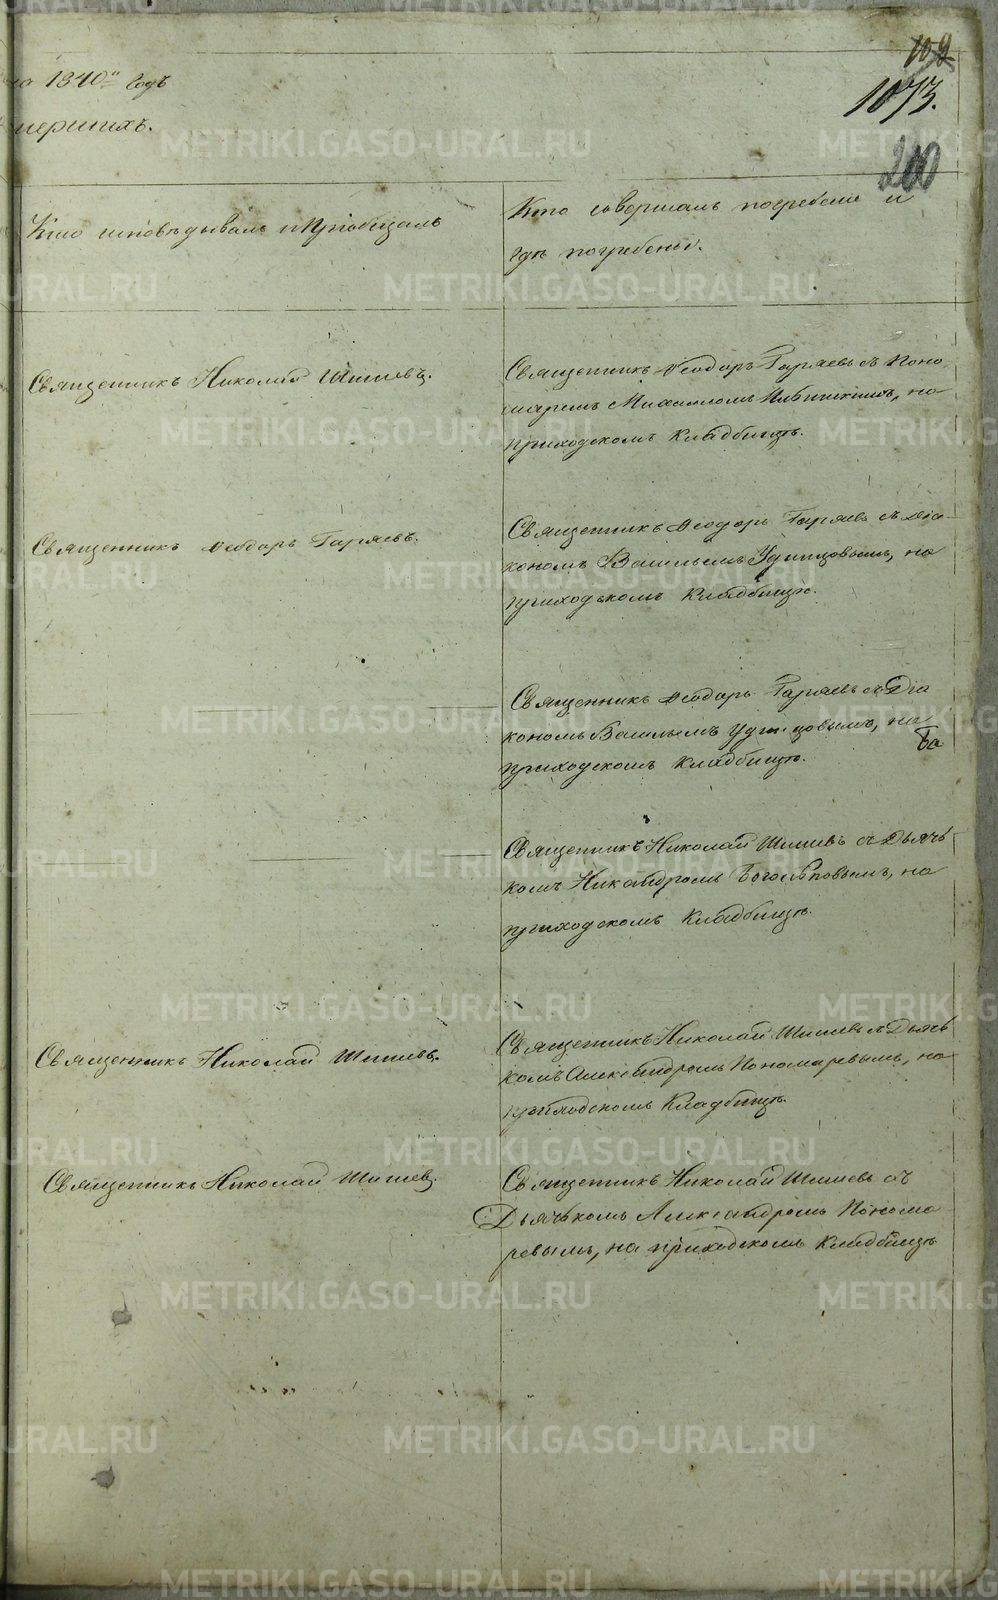 на 1840й Годъ
умершихъ.
109
1073.
200
Кто исповѣдывалъ и Пріобщалъ
Кто совершалъ погребеніе и
гдѣ погребены.
Священникъ Николай Шишевъ.
Священникъ Ѳеодоръ Гаряевъ съ Поно-
маремъ Михаиломъ, на
приходскомъ Кладбищѣ.
Священникъ Ѳеодоръ Гаряевъ.
Священникъ Ѳеодоръ Гаряевъ съ Діа-
кономъ Васильемъ Удинцовымъ, на
приходскомъ Кладбищѣ.
Священникъ Ѳеодоръ Гаряевъ съ Діа
кономъ Васильемъ Удинцовымъ, на
приходскомъ Кладбищѣ.
Ба
Священникъ Николай Шишевъ съ Дьячь
комъ Никандромъ Боголѣповымъ, на
приходскомъ Кладбищѣ.
Священникъ Николай Шишевъ.
Священникъ Николай Шишевъ съ Дьячь
комъ Александромъ Пономаревымъ, на
приходскомъ Кладбищѣ.
Священникъ Николай Шишев.
Священникъ Николай Шишевъ съ
Дьячькомъ Александромъ Понома
ревымъ, на приходскомъ Кладбищѣ
METRIKI.GASO-URAL.RU